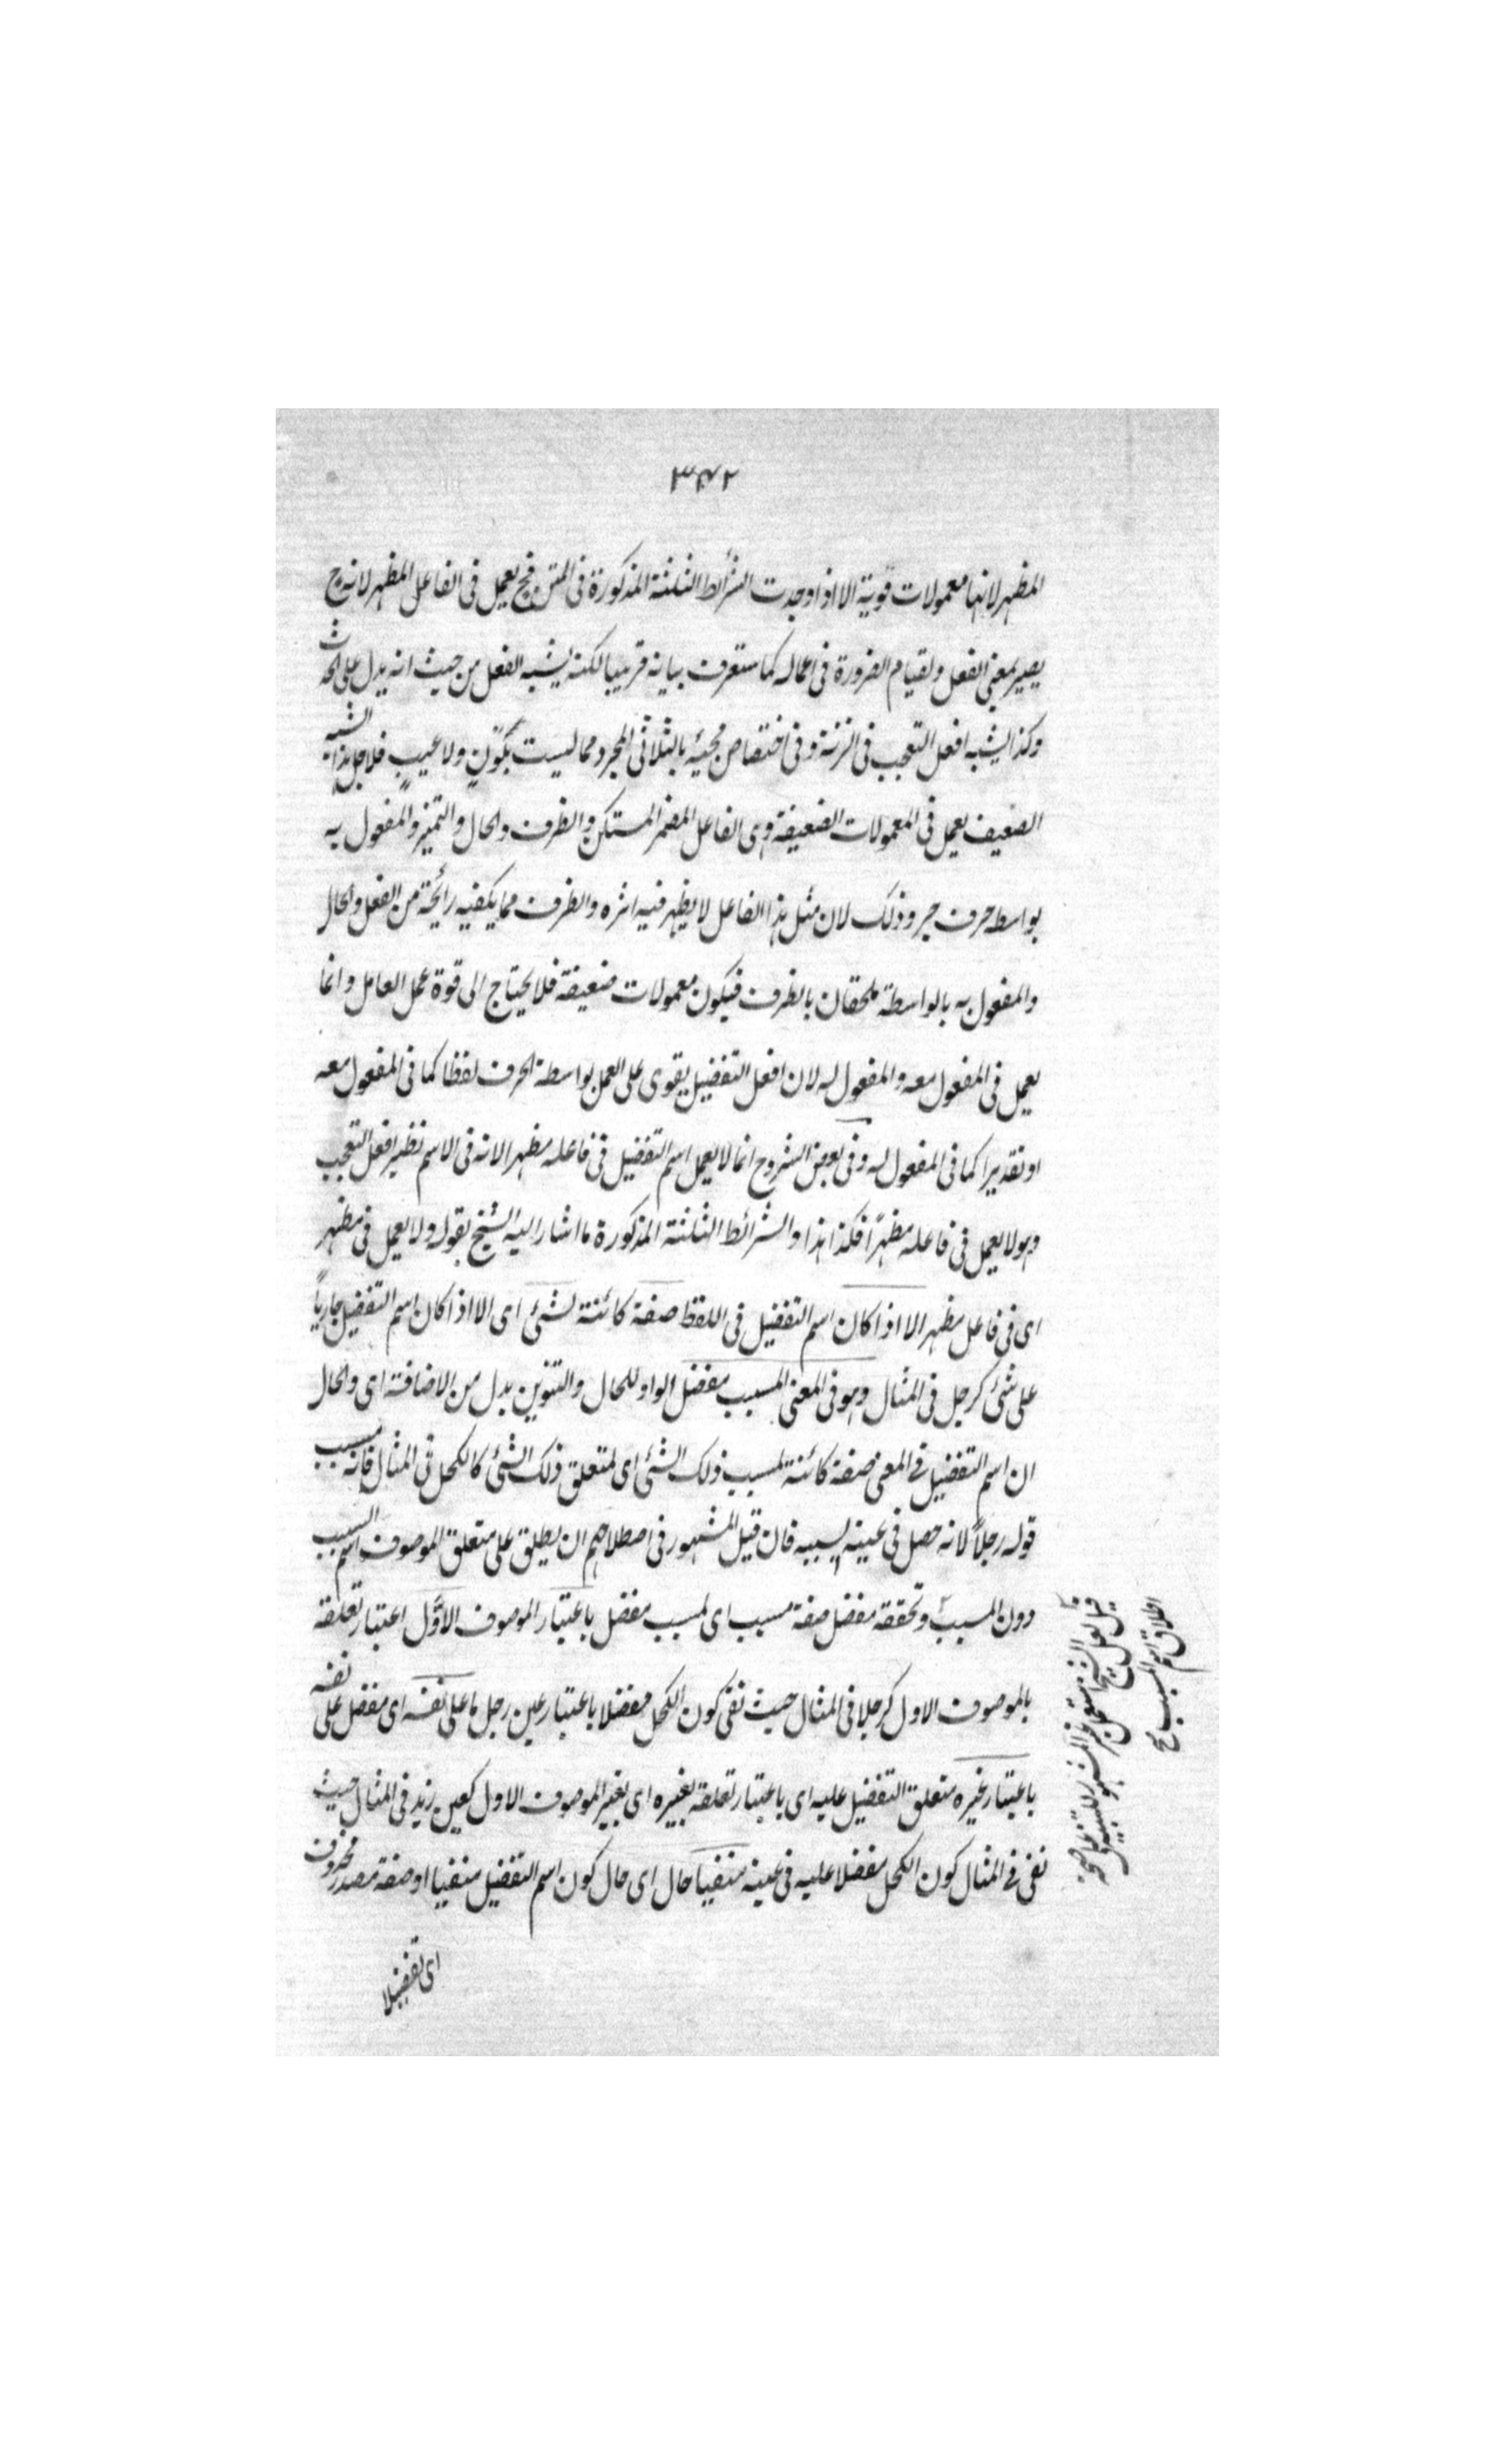 ٣٤٢
المظهر لانها معمولات قوية الا اذا وجدت الشرائط الثلثة المذكورة فى المتن فح يعمل فى الفاعل المظهر لانه ح
يصير بمعنى الفعل ولقيام الضرورة فى اعماله كما ستعرف بيانه قريبا لكنه يشبه الفعل من حيث انه يدل على الحدث
وكذا يشبه افعل التعجب فى الزنة وفى اختصاص مجيئه بالثلاثى المجرد مما ليست بلون ولا عيب فلاجل هذا الشبه
الضعيف يعمل فى المعمولات الضعيفة وهى الفاعل المضمر المستكن والظرف والحال والتميز والمفعول به
بواسطه حرف جر وذلك لان مثل هذا الفاعل لا يظهر فيه اثره والظرف مما يكفيه رائحة من الفعل والحال
والمفعول به بالواسطة ملحقان بالظرف فيكون معمولات ضعيفة فلا يحتاج الى قوة عمل العامل وانما
يعمل فى المفعول معه والمفعول له لان افعل التفضيل يقوى على العمل بواسطة الحرف لفظا كما فى المفعول معه
او تقديرا كما فى المفعول له وفى بعض الشروح انما لا يعمل اسم التفضيل فى فاعله مظهرا لانه فى الاسم نظير افعل التعجب
وهو لا يعمل فى فاعله مظهرًا فكذا هذا والشرائط الثلثة المذكورة ما اشار اليه الشيخ بقوله ولا يعمل فى مظهر
اى فى فاعل مظهر الا اذا كان اسم التفضيل فى اللفظ صفة كائنة لشئ اى الا اذا كان اسم التفضيل جارياً
على شئ كرجل فى المثال وهو فى المعنى لمسبب مفضل الواو للحال والتنوين بدل من الاضافة اى والحال
ان اسم التفضيل فى المعنى صفة كائنة لمسبب ذلك الشئ اى لمتعلق ذلك الشئ كالكحل فى المثال فانه مسبب
قوله رجلاً لانه حصل فى عينه بسببه فان قيل المشهور فى اصطلاحهم ان يطلق على متعلق الموصوف اسم السبب
دون المسبب وتحققه مفضل صفة مسبب اى لمسبب مفضل باعتبار الموصوف الاوّل اعتبار تعلقه
بالموصوف الاول كرجلا فى المثال حيث نفى كون الكحل مفضلا باعتبار عين رجل ما على نفسه اى مفضل على نفسه
باعتبار غيره متعلق التفضيل عليه اى باعتبار تعلقه بغيره اى بغير الموصوف الاول كعين زيد فى المثال حيث
نفى فى المثال كون الكحل مفضلا عليه فى عينه منفيا حال اى حال كون اسم التفضيل منفيا او صفة مصدر محذوف
اى تفضيلا
قيل لعل الشيخ غير المشهور للتنبيه على صحة
اطلاق اسم المسبب